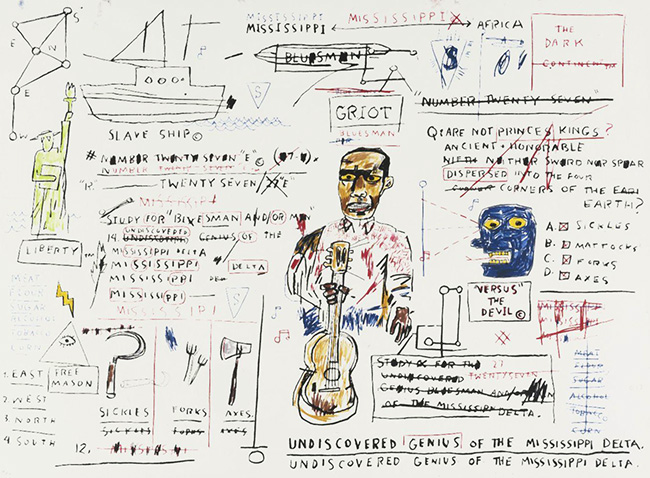 S
E
W
N
E
W
MISSISSIPPI
MISSISSIPPI
MISSISSIPPIX
AFRICA
THE
DARK
CONTINENT
BLUESMAN
S
S
GRIOT
BLUESMAN
"NUMBER TWENTY SEVEN"
SLAVE SHIP©
# NUMBER TWENTY SEVEN "E" ©
NUMBER TWENTY SEVEN
TWENTY SEVEN/
"E
MISSISSIPPI
STUDY FOR "BLUESMAN AND/OR MAN"
UNDISCOVERED
14. UNDISCOVERED GENIUS OF THE
MISSISSIPPI DELTA
MISSISSIPPI
MISSISSIPPI
DELTA
MISSISSIPPI
MISSISSIPPI
S
Q: ARE NOT PRINCES KINGS?
ANCIENT + HONORABLE
NEITHER SWORD NOR SPEAR
DISPERSED INTO THE FOUR
CORNERS OF THE EARTH?
A. SICKLES
B. MATTOCKS
C. FORKS
D. AXES
LIBERTY
MEAT
FLOUR
SUGAR
ALCOHOL
TOBACCO
CORN
1. EAST
2. WEST
3. NORTH
4. SOUTH
FREE
MASON
SICKLES
SICKLES
FORKS
FORKS
AXES.
AXES
12.
MISSISSIPPI
"VERSUS"
THE
DEVIL©
STUDY FOR THE
27
UNDISCOVERED
TWENTYSEVEN
GENIUS BLUESMAN AND/OR
OF THE MISSISSIPPI DELTA.
MISSISSIPPI
MEAT
FLOUR
SUGAR
ALCOHOL
TOBACCO
CORN
UNDISCOVERED GENIUS OF THE MISSISSIPPI DELTA.
UNDISCOVERED GENIUS OF THE MISSISSIPPI DELTA.